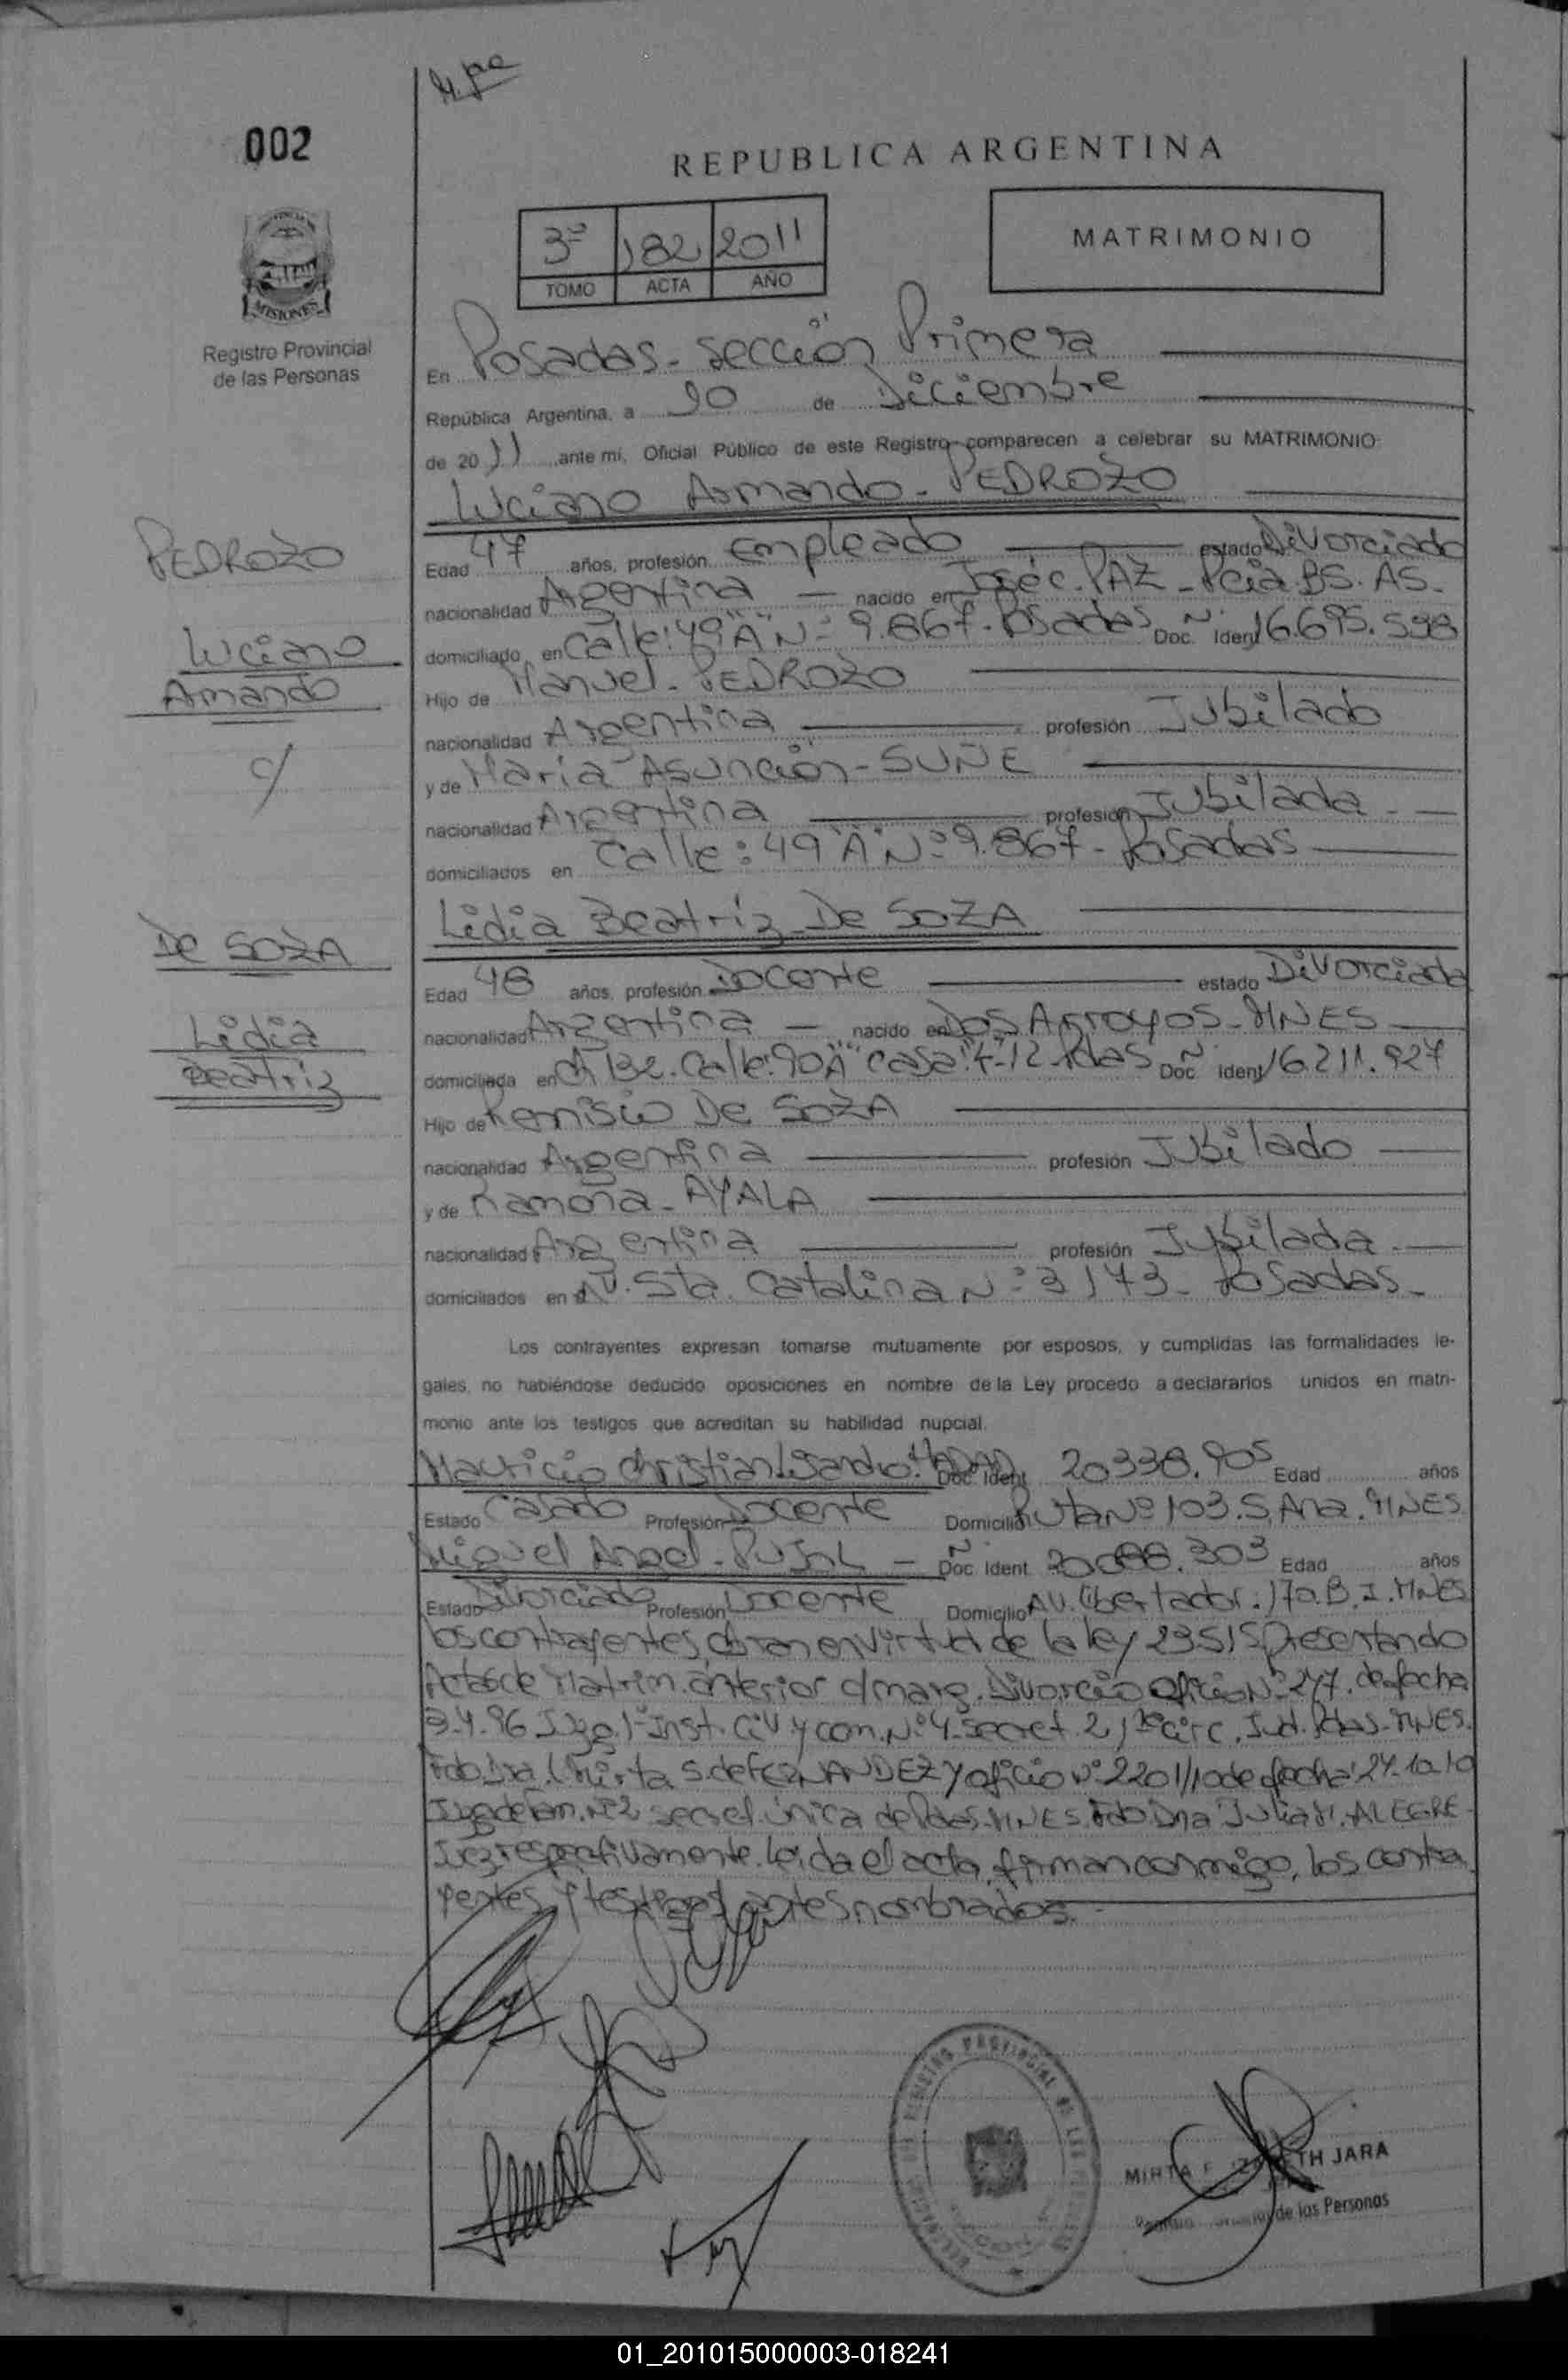 002
REPUBLICA ARGENTINA
3º 182 2011
TOMO ACTA AÑO
MATRIMONIO
MISIONES
Registro Provincial
de las Personas
En Posadas - Sección Primera
República Argentina, a de Diciembre
de 2011 ante mí, Oficial Público de este Registro comparecen a celebrar su MATRIMONIO
Luciano Armando - PEDROZO
PEDROZO
Luciano
Armando
c/
DE SOZA
Lidia
Beatriz
Edad 47 años, profesión Empleado estado Divorciado
nacionalidad Argentina nacido en José C. PAZ - Pcia. BS. AS.
domiciliado en Calle: 49 "A" Nº 9.867 - Posadas Doc. Ident 16.695.598
Hijo de Manuel - PEDROZO
nacionalidad Argentina profesión Jubilado
y de María Asunción - SUÑE
nacionalidad Argentina profesión Jubilada
domiciliados en Calle: 49 "A" Nº 9.867 - Posadas
Lidia Beatriz De SOZA
Edad 48 años, profesión Docente estado Divorciada
nacionalidad Argentina nacido en Dos Arroyos - MNES
domiciliada en Calle: 90 "A" casa: 4-12 - Pdas Doc. Ident 16.211.927
Hijo de Remisio De SOZA
nacionalidad Argentina profesión Jubilado
y de Ramona - AYALA
nacionalidad Argentina profesión Jubilada
domiciliados en AV. Sta. Catalina Nº 3173 - Posadas
Los contrayentes expresan tomarse mutuamente por esposos, y cumplidas las formalidades le-
gales, no habiéndose deducido oposiciones en nombre de la Ley procedo a declararlos unidos en matri-
monio ante los testigos que acreditan su habilidad nupcial.
Mauricio Christian Lisandro Doc. Ident 20.338.905 Edad años
Estado Casado Profesión Docente Domicilio Ruta Nº 103. S. Ana. MNES
Miguel Angel - PUJOL - Doc. Ident. 303 Edad años
Estado Divorciado Profesión Docente Domicilio AV. Libertador: 170. B. I. MNES
los contrayentes obran en virtud de la ley 23515 Presentando
Actas de Matrim. anterior c/marg. Divorcio oficio Nº 277. de fecha
9.4.96 Juzg. 1º Inst. Civ. y com. Nº 4. secret. 2, 1º circ. Jud. Pdas - MNES.
Fdo Dra. Mirta S. de FERNANDEZ y oficio Nº 2201/10 de fecha: 27.10.10
Juzg. de Fam. Nº 2 secret. única de Pdas. MNES. Fdo Dra Julia M. ALEGRE
Juez respectivamente. Leída el acta, firman conmigo, los contra
yentes y testigos antes nombrados.
JARA
de las Personas
01_201015000003-018241